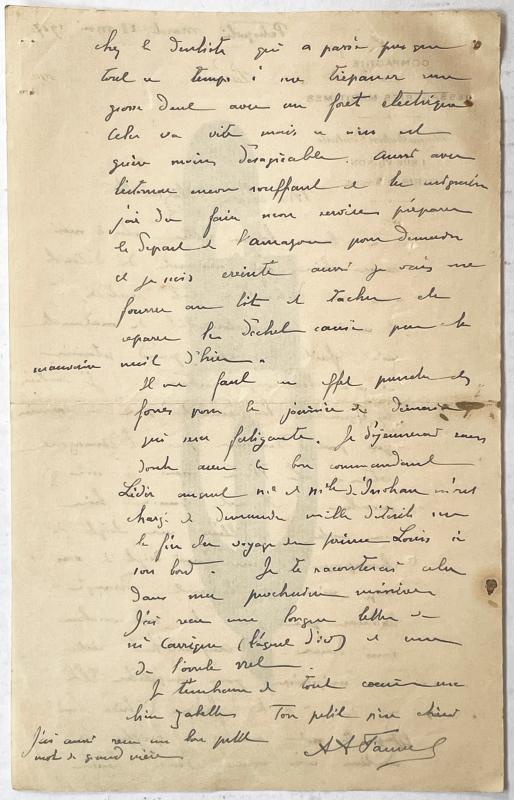 chez le dentiste qui a passé presque
tout ce temps à me trépaner une
grosse dent avec un foret électrique
Cela va vite mais ce n'est
guère moins désagréable. Aussi avec
l'estomac encore souffrant et la migraine
j'ai dû faire mon service préparer
le départ de l'amazone pour demain
et je suis éreinté aussi je vais me
fourrer au lit et tacher de
reparer le déchet causé par la
mauvaise nuit d'hier.
Il me faut en effet prendre des
forces pour la journée de demain
qui sera fatigante. Je déjeunerai sans
doute avec le bon commandant
auquel Me et Melle m'ont
chargé de demander mille détails sur
la fin du voyage du prince Louis à
son bord. Je te raconterai cela
dans ma prochaine missive
J'ai reçu une longue lettre de
et une
de l'oncle
Je t'embrasse de tout coeur ma
bien Ton petit
J'ai aussi reçu un bon petit
mot de grand mère